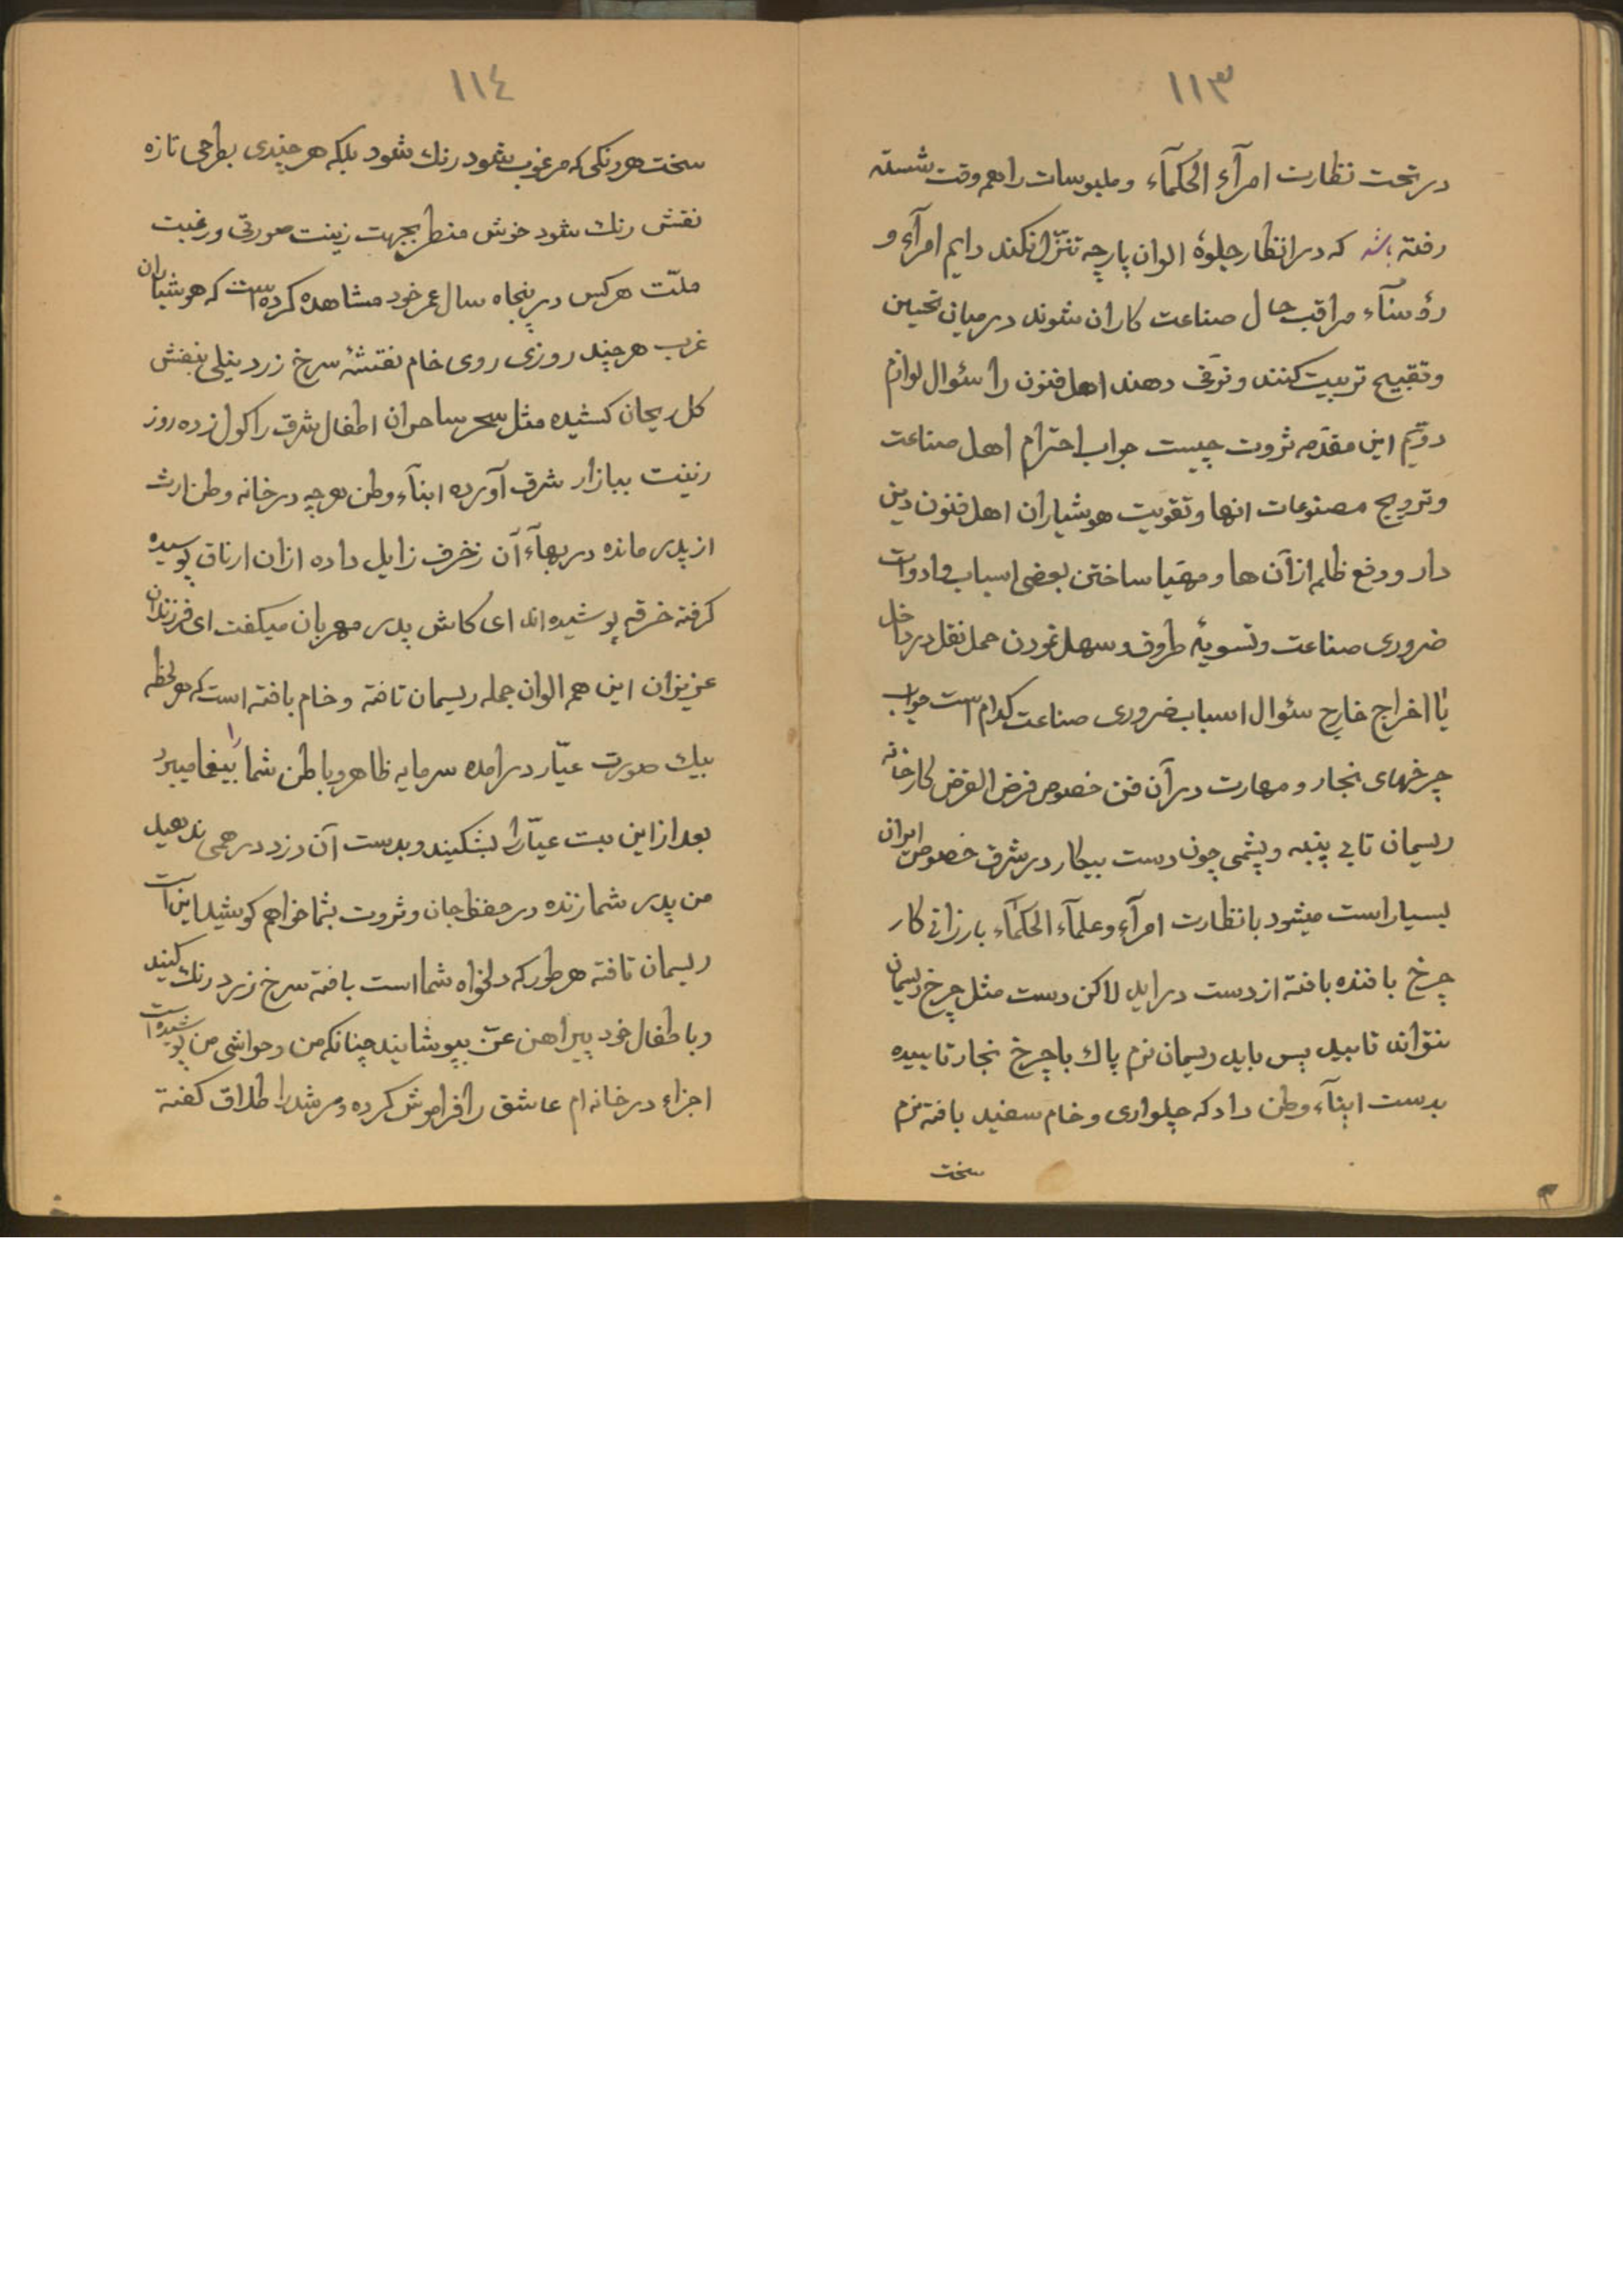 ۱۱۳
در تحت نظارت امرآء الحکمآء و ملبوسات را همه وقت شسته
رفته باشد که در انظار جلوهٔ الوان پارچه تنزّل نکند دایم امرآء و
رؤسآء مراقب حال صناعت کاران شوند در میان تحسین
و تقبیح تربیت کنند و ترقی دهند اهل فنون را سئوال لوازم
دویّم این مقدّمه ثروت چیست جواب احترام اهل صناعت
و ترویج مصنوعات انها و تقویت هوشیاران اهل فنون دین
دار و دفع ظلم از آن ها و مهیّا ساختن بعضی اسباب و ادوات
ضروری صناعت و تسویهٔ طروق و سهل نمودن حمل نقل در داخل
یا اخراج خارج سئوال اسباب ضروری صناعت کدام است جواب
چرخهای نجار و مهارت در آن فنّ خصوص فرض الفرض کارخانه
ریسمان تابی پنبه و پشمی چون دست بیکار در شرق خصوص ایران
بسیار است میشود با نظارت امرآء و علمآء الحکمآء بارزانی کار
چرخ بافنده بافته از دست در اید لاکن دست مثل چرخ ریسمان
نتواند تابید پس باید ریسمان نرم پاك با چرخ نجار تابیده
بدست ابنآء وطن داد که چلواری و خام سفید بافته نرم
سخت
۱۱٤
سخت هر رنگی که مرغوب شود رنك شود بلکه هر چندی بطرحی تازه
نقش رنك شود خوش منظر بجهت زینت صورتی و رغبت
ملّت هر کس در پنجاه سال عمر خود مشاهده کرده است که هوشیاران
غرب هر چند روزی روی خام نقشهٔ سرخ زرد نیلی بنفش
کل ریحان کشیده مثل سحر ساحران اطفال شرق را کول زده روز
زینت ببازار شرق آورده ابنآء وطن هر چه در خانه وطن ارث
از پدر مانده در بهآء آن زخرف زایل داده ازان ارناق پوسیده
کرفته خرقه پوشیده اند ای کاش پدر مهربان میکفت ای فرزندان
عزیزان این همه الوان جمله ریسمان تافته و خام بافته است که هر لحظه
بیك صورت عیّار درامده سرمایه ظاهر و باطن شما را بیغما میبرد
بعد از این بت عیّار را بشکنید و بدست آن دزد درهمی ندهید
من پدر شما زنده در حفظ جان و ثروت بشما خواهم کوشید این است
ریسمان تافته هر طور که دلخواه شما است بافته سرخ زرد رنك کنید
و باطفال خود پیراهن عزّت بپوشانید چنانکه من و حواشی من پوشیده است
اجزاء در خانه ام عاشق را فراموش کرده و مرشد را طلاق کفته